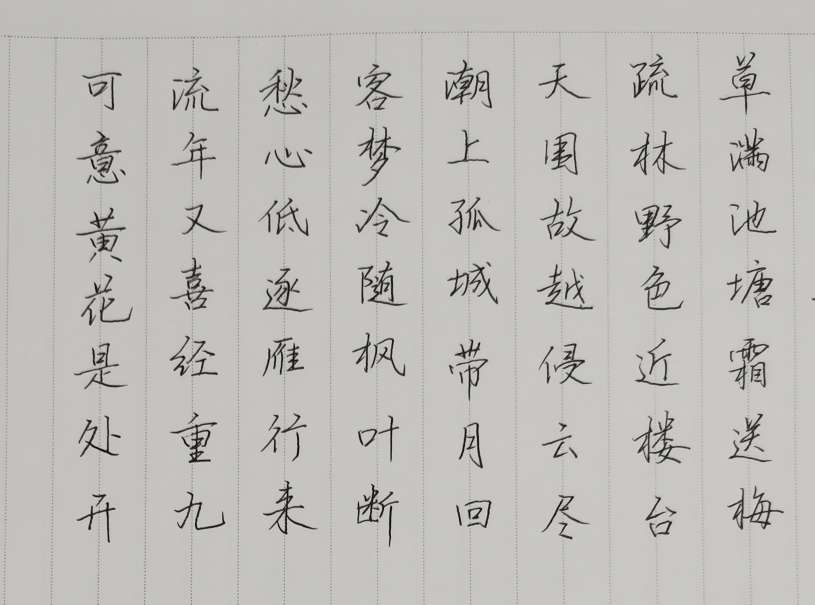 草满池塘霜送梅
疏林野色近楼台
天围故越侵云尽
潮上孤城带月回
客梦冷随枫叶断
愁心低逐雁行来
流年又喜经重九
可意黄花是处开